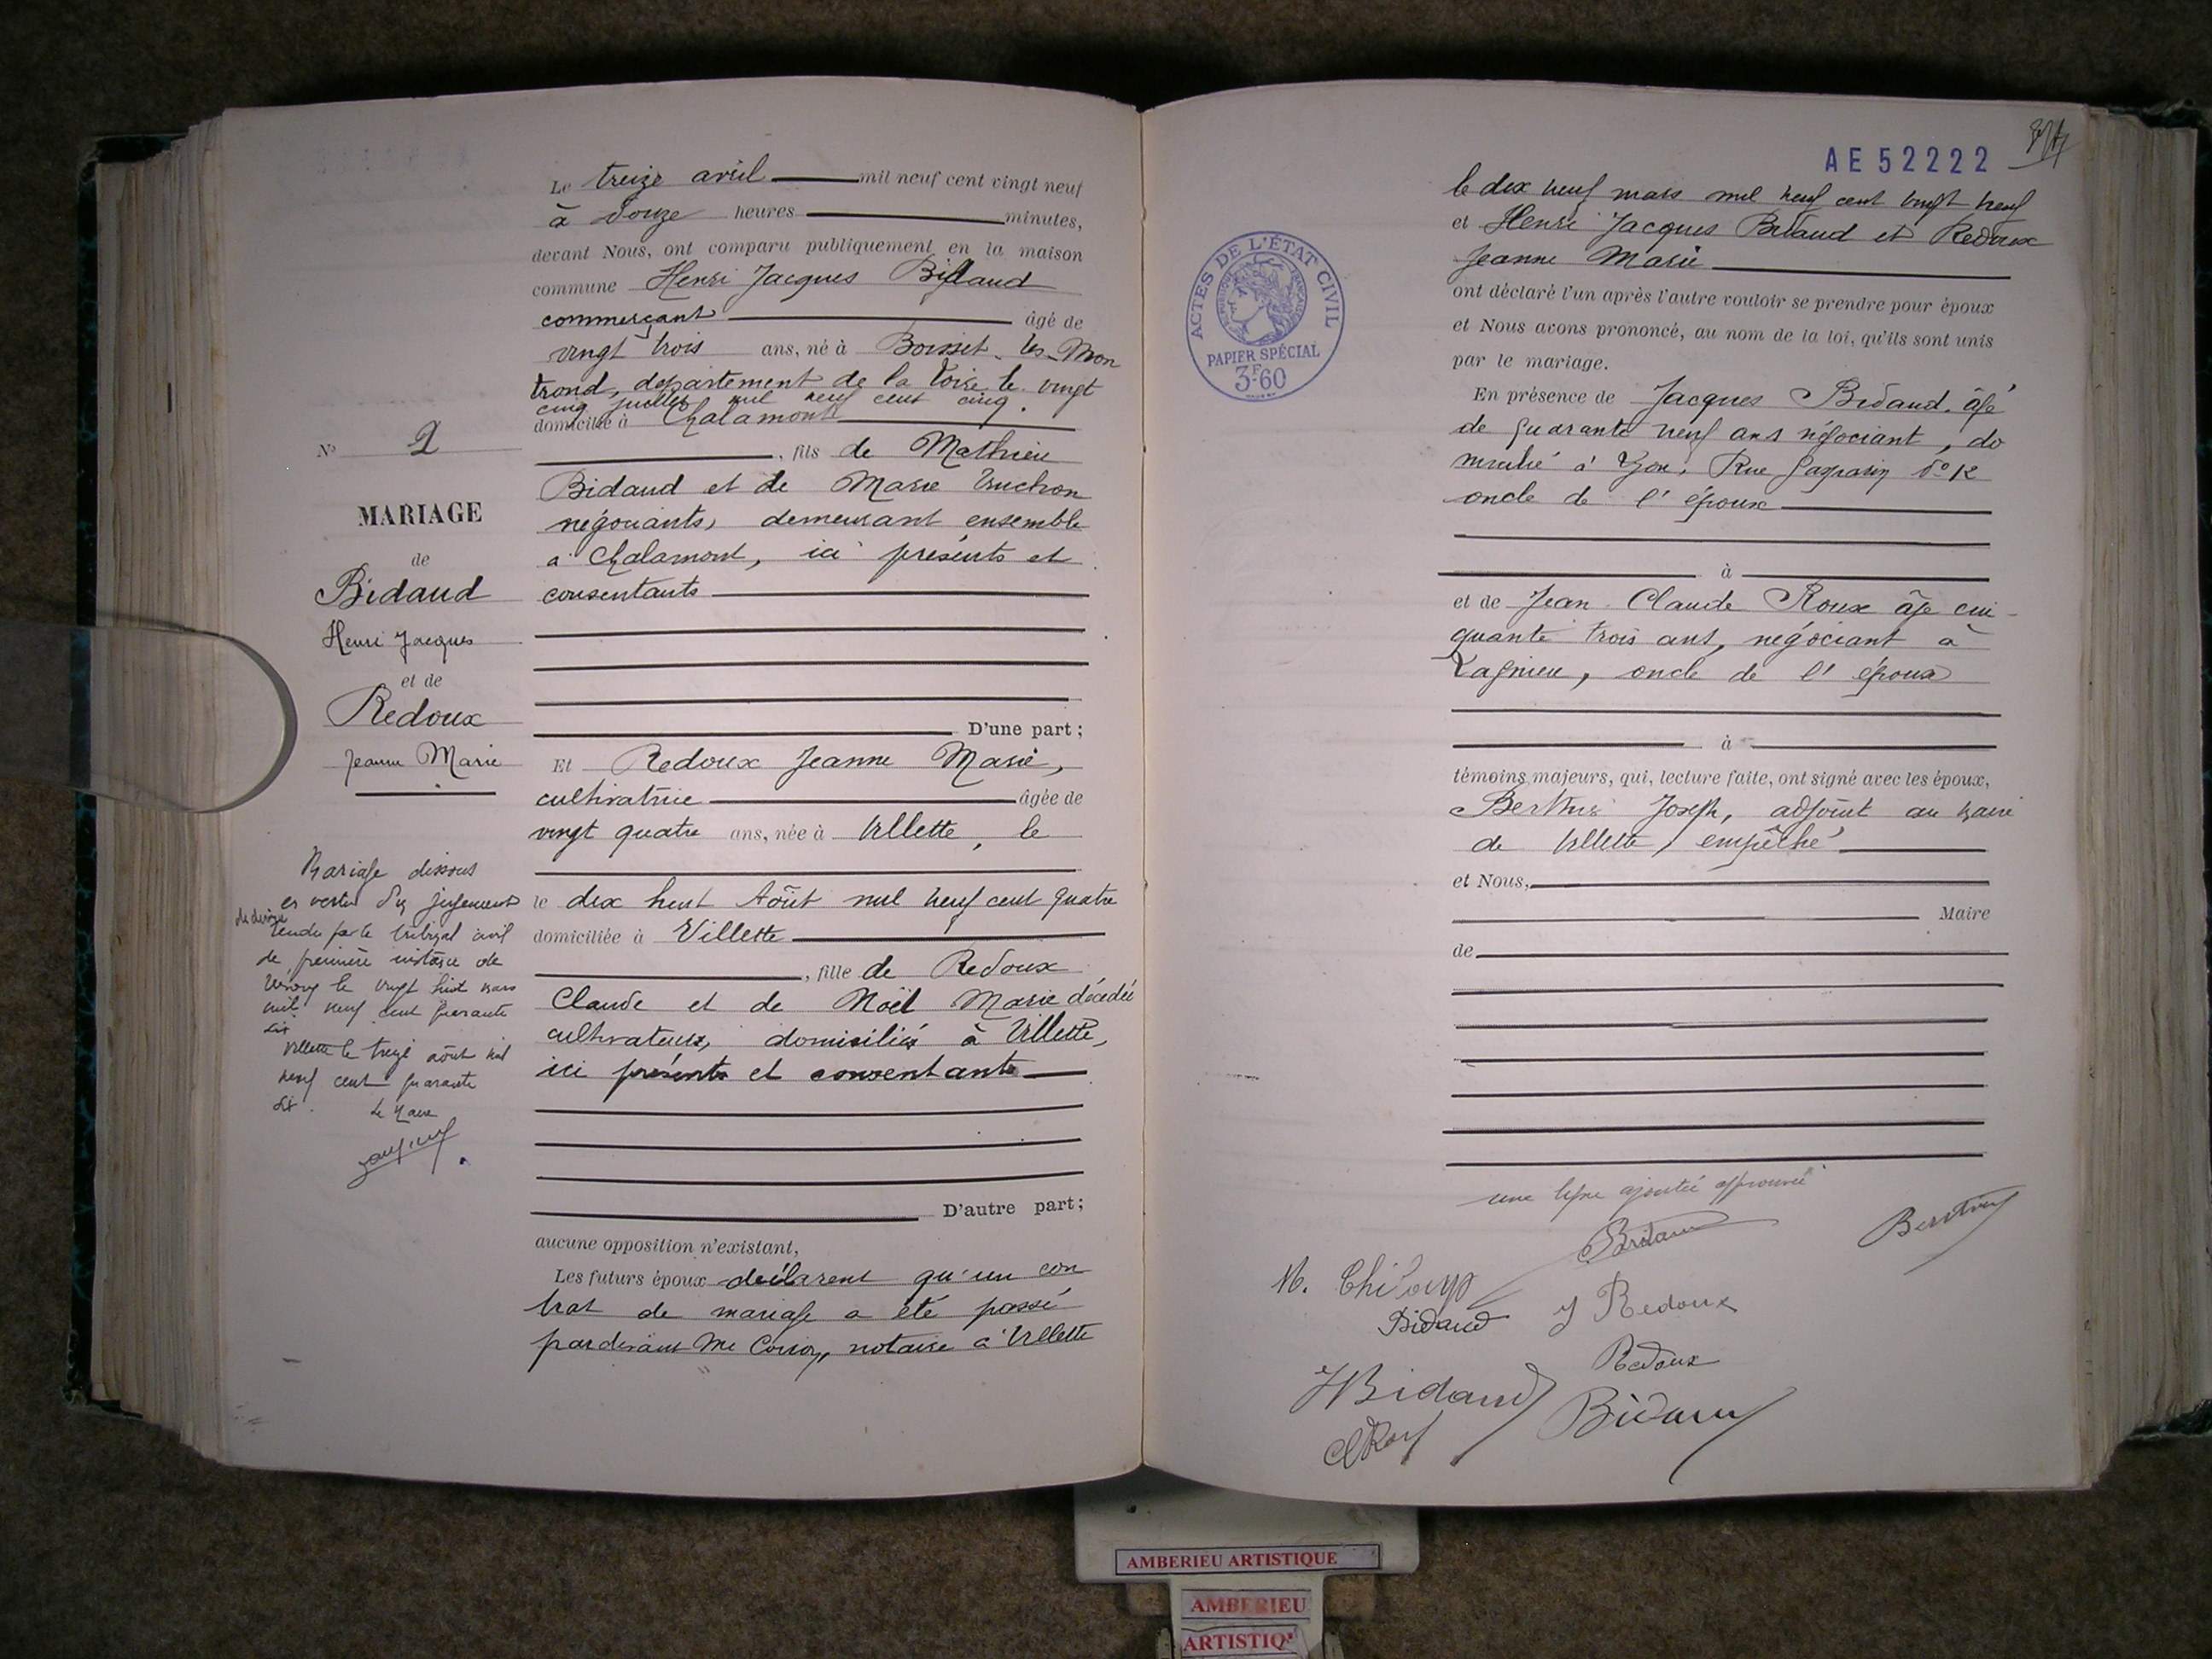 Le treize avril mil neuf cent vingt neuf
à douze heures minutes,
devant Nous, ont comparu publiquement en la maison
commune Henri Jacques Bidaud
commerçant âgé de
vingt trois ans, né à Boisset-les-Mon
trond, département de la Loire le vingt
cinq juillet mil neuf cent cinq.
domicilié à Chalamont
, fils de Mathieu
Bidaud et de Marie Truchon
négociants, demeurant ensemble
à Chalamont, ici présents et
consentants
D'une part;
Et Redoux Jeanne Marie,
cultivatrice âgée de
vingt quatre ans, née à Villette, le
le dix huit Août mil neuf cent quatre
domiciliée à Villette
, fille de Redoux
Claude et de Noël Marie décédée
cultivateurs, domiciliés à Villette,
ici présents et consentants
D'autre part;
aucune opposition n'existant,
Les futurs époux déclarent qu'un con
trat de mariage a été passé
pardevant Me notaire à Villette
N° 2
MARIAGE
de
Bidaud
Henri Jacques
et de
Redoux
Jeanne Marie
Mariage dissous
en vertu d'un jugement
de divorce
rendu par le tribunal civil
de première instance de
le vingt huit mars
mil neuf cent quarante
six
Villette le treize août mil
neuf cent quarante
six.
Le Maire
AE 52222
le dix neuf mars mil neuf cent vingt neuf
et Henri Jacques Bidaud et Redoux
Jeanne Marie
ont déclaré l'un après l'autre vouloir se prendre pour époux
et Nous avons prononcé, au nom de la loi, qu'ils sont unis
par le mariage.
En présence de Jacques Bidaud, âgé
de quarante neuf ans négociant, do
micilié à Lyon, Rue Gasparin N° 12
oncle de l'époux
à
et de Jean Claude Roux âgé cin-
quante trois ans, négociant à
Lagnieu, oncle de l'époux
à
témoins majeurs, qui, lecture faite, ont signé avec les époux,
Joseph, adjoint au maire
de Villette, empêché
et Nous,
Maire
de
une ligne ajoutée approuvée
Bidaud
M.
Bidaud
J Redoux
Redoux
JBidaud
Bidaud
ACTES DE L'ÉTAT CIVIL
PAPIER SPÉCIAL
3F60
AMBERIEU ARTISTIQUE
AMBERIEU
ARTISTIQ